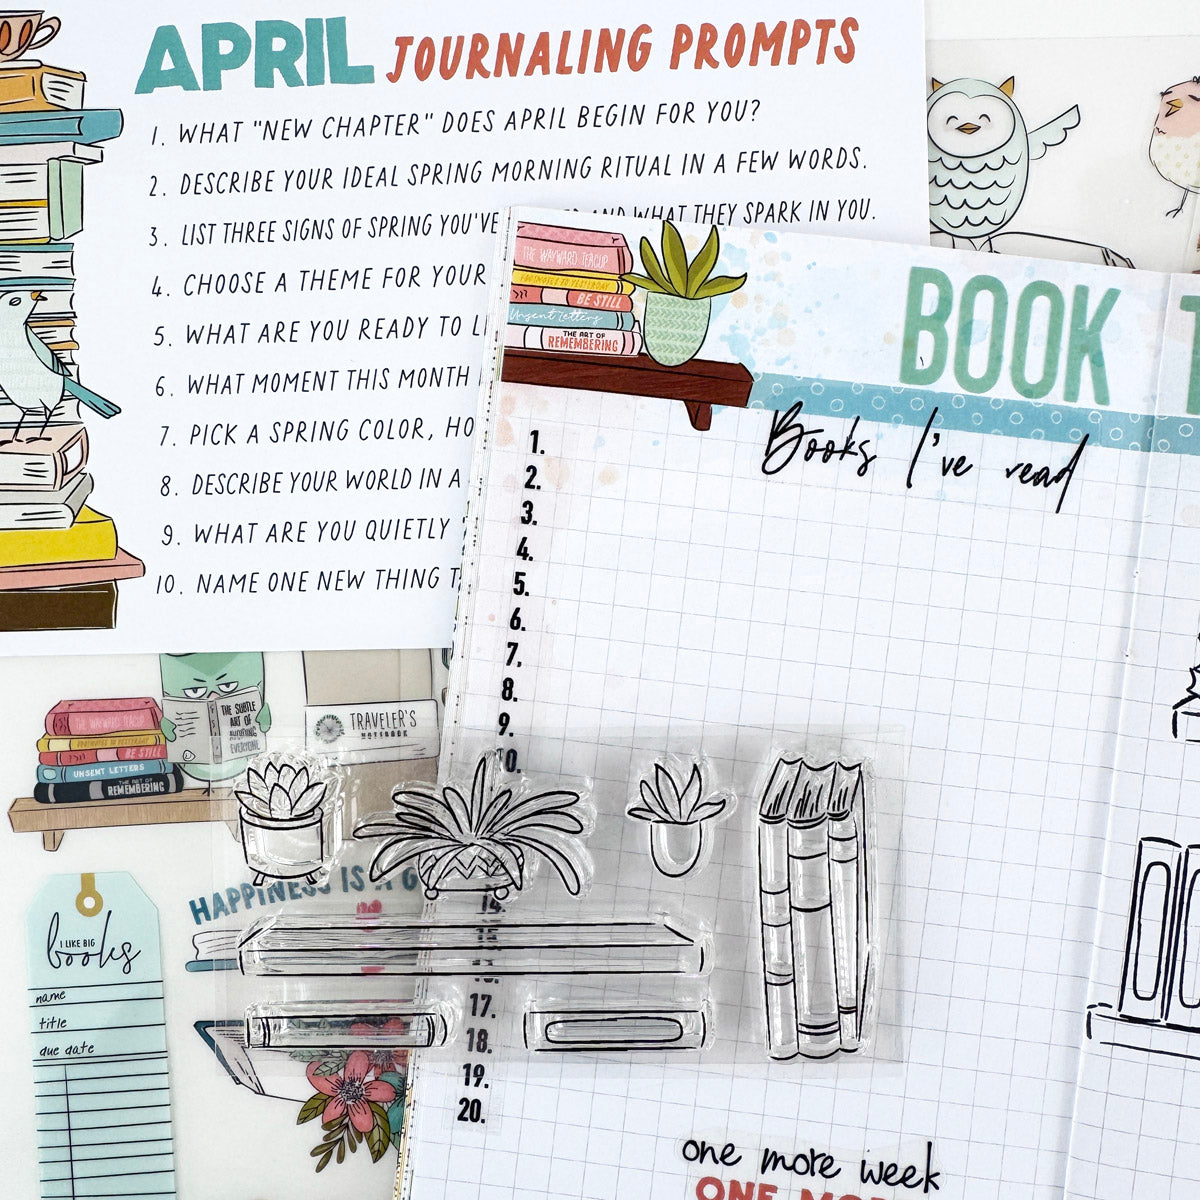 APRIL JOURNALING PROMPTS
1. WHAT "NEW CHAPTER" DOES APRIL BEGIN FOR YOU?
2. DESCRIBE YOUR IDEAL SPRING MORNING RITUAL IN A FEW WORDS.
3. LIST THREE SIGNS OF SPRING YOU'VE AND WHAT THEY SPARK IN YOU.
4. CHOOSE A THEME FOR YOUR
5. WHAT ARE YOU READY TO
6. WHAT MOMENT THIS MONTH
7. PICK A SPRING COLOR,
8. DESCRIBE YOUR WORLD IN A
9. WHAT ARE YOU QUIETLY
10. NAME ONE NEW THING
THE WAYWARD TEACUP
POSTCARDS TO YESTERDAY
BE STILL
Unsent Letters
THE ART OF
REMEMBERING
BOOK
Books I've read
1.
2.
3.
4.
5.
6.
7.
8.
9.
10.
14.
15.
16.
17.
18.
19.
20.
one more week
THE WAYWARD TEACUP
BE STILL
UNSENT LETTERS
THE ART OF
REMEMBERING
THE SUBTLE
ART OF
EVERYONE
TRAVELER'S
NOTEBOOK
HAPPINESS IS A
I LIKE BIG
books
name
title
due date